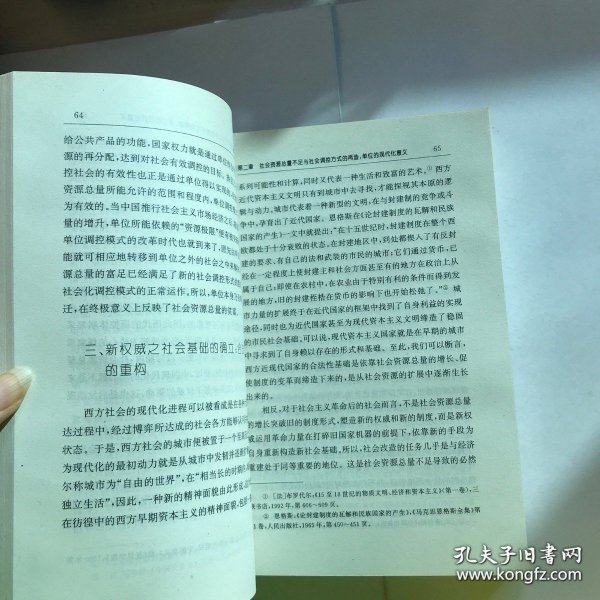 64
给公共产品的功能，国家权力就是通过单位
源的再分配，达到对社会有效调控的目标。
控社会的有效性也正是通过单位得以实现的
资源总量所能允许的范围和程度内，单位调
为有效的。当中国推行社会主义市场经济之后
量的增升，单位所能依赖的“资源极限”便
单位调控模式的改革时代也就到来了。原先
能就可相应地转移到单位之外的社会之中
源总量的富足已经满足了新的社会调控形式
社会化调控模式的正常运作。所以，单位本身
迁，在终极意义上反映了社会资源总量的变
三、新权威之社会基础的确立
的重构
西方社会的现代化进程可以被看成是在
达过程中，经过博弈所达成的社会各方能够认
状态。于是，西方社会的城市便被置于一个
为现代化的最初动力就是从城市中发轫并
尔称城市为“自由的世界”，在“相当长的时期
独立生活”，因此，一种新的精神面貌由此形成
在彷徨中的西方早期资本主义的精神面貌，包
第二章 社会资源总量不足与社会调控方式的再造：单位的现代化意义 65
系列可能性和计算，同时又代表一种生活和致富的艺术。①西方
近代资本主义文明只有到城市中去寻找，方能探视其本原的逻
辑与动力。城市代表着一种新型的文明，在与封建制的竞争或斗
争中，孕育出了近代国家。恩格斯在《论封建制度的瓦解和民族
国家的产生》一文中就提出：“在十五世纪时，封建制度在整个西
欧都处于十分衰败的状态，在封建地区中，到处都楔入了有反封
建的要求、有自己的法和武装的市民的城市；它们通过货币，已
经在一定程度上使封建主和社会方面甚至有的地方在政治上从
属于自己；即使在农村中，在农业由于特别有利的条件而得到发
展的地方，旧的封建桎梏在货币的影响下也开始松弛了。”②城
市力量的扩展终于在近代国家的框架中找到了自身利益的实现
途径，同时也为近代国家甚至为现代资本主义文明缔造了稳固
的市民社会基础。可以说，现代资本主义国家就是在早期的城市
中寻求到了自身赖以存在的形式和基础。至此，我们可以断言，
西方近现代国家的合法性基础是依靠社会资源总量的增长、促
使制度的变革而缔造下来的，是从社会资源的扩展中逐渐生长
出来的。
相反，对于社会主义革命后的社会而言，不是社会资源总量
的增长突破旧的制度形式，塑造新的权威和新的制度，而是新权
威运用革命力量在打碎旧国家机器的前提下，依靠新的手段为
自身重新构造新社会基础。所以，社会改造的任务几乎是与经济
重建处于同等重要的地位。这是社会资源总量不足导致的必然
① 〔法〕布罗代尔：《15至18世纪的物质文明、经济和资本主义》（第一卷），三
联书店，1992年，第606—609页。
② 恩格斯：《论封建制度的瓦解和民族国家的产生》，《马克思恩格斯全集》第
21卷，人民出版社，1965年，第450—451页。
孔夫子旧书网
www.kongfz.com